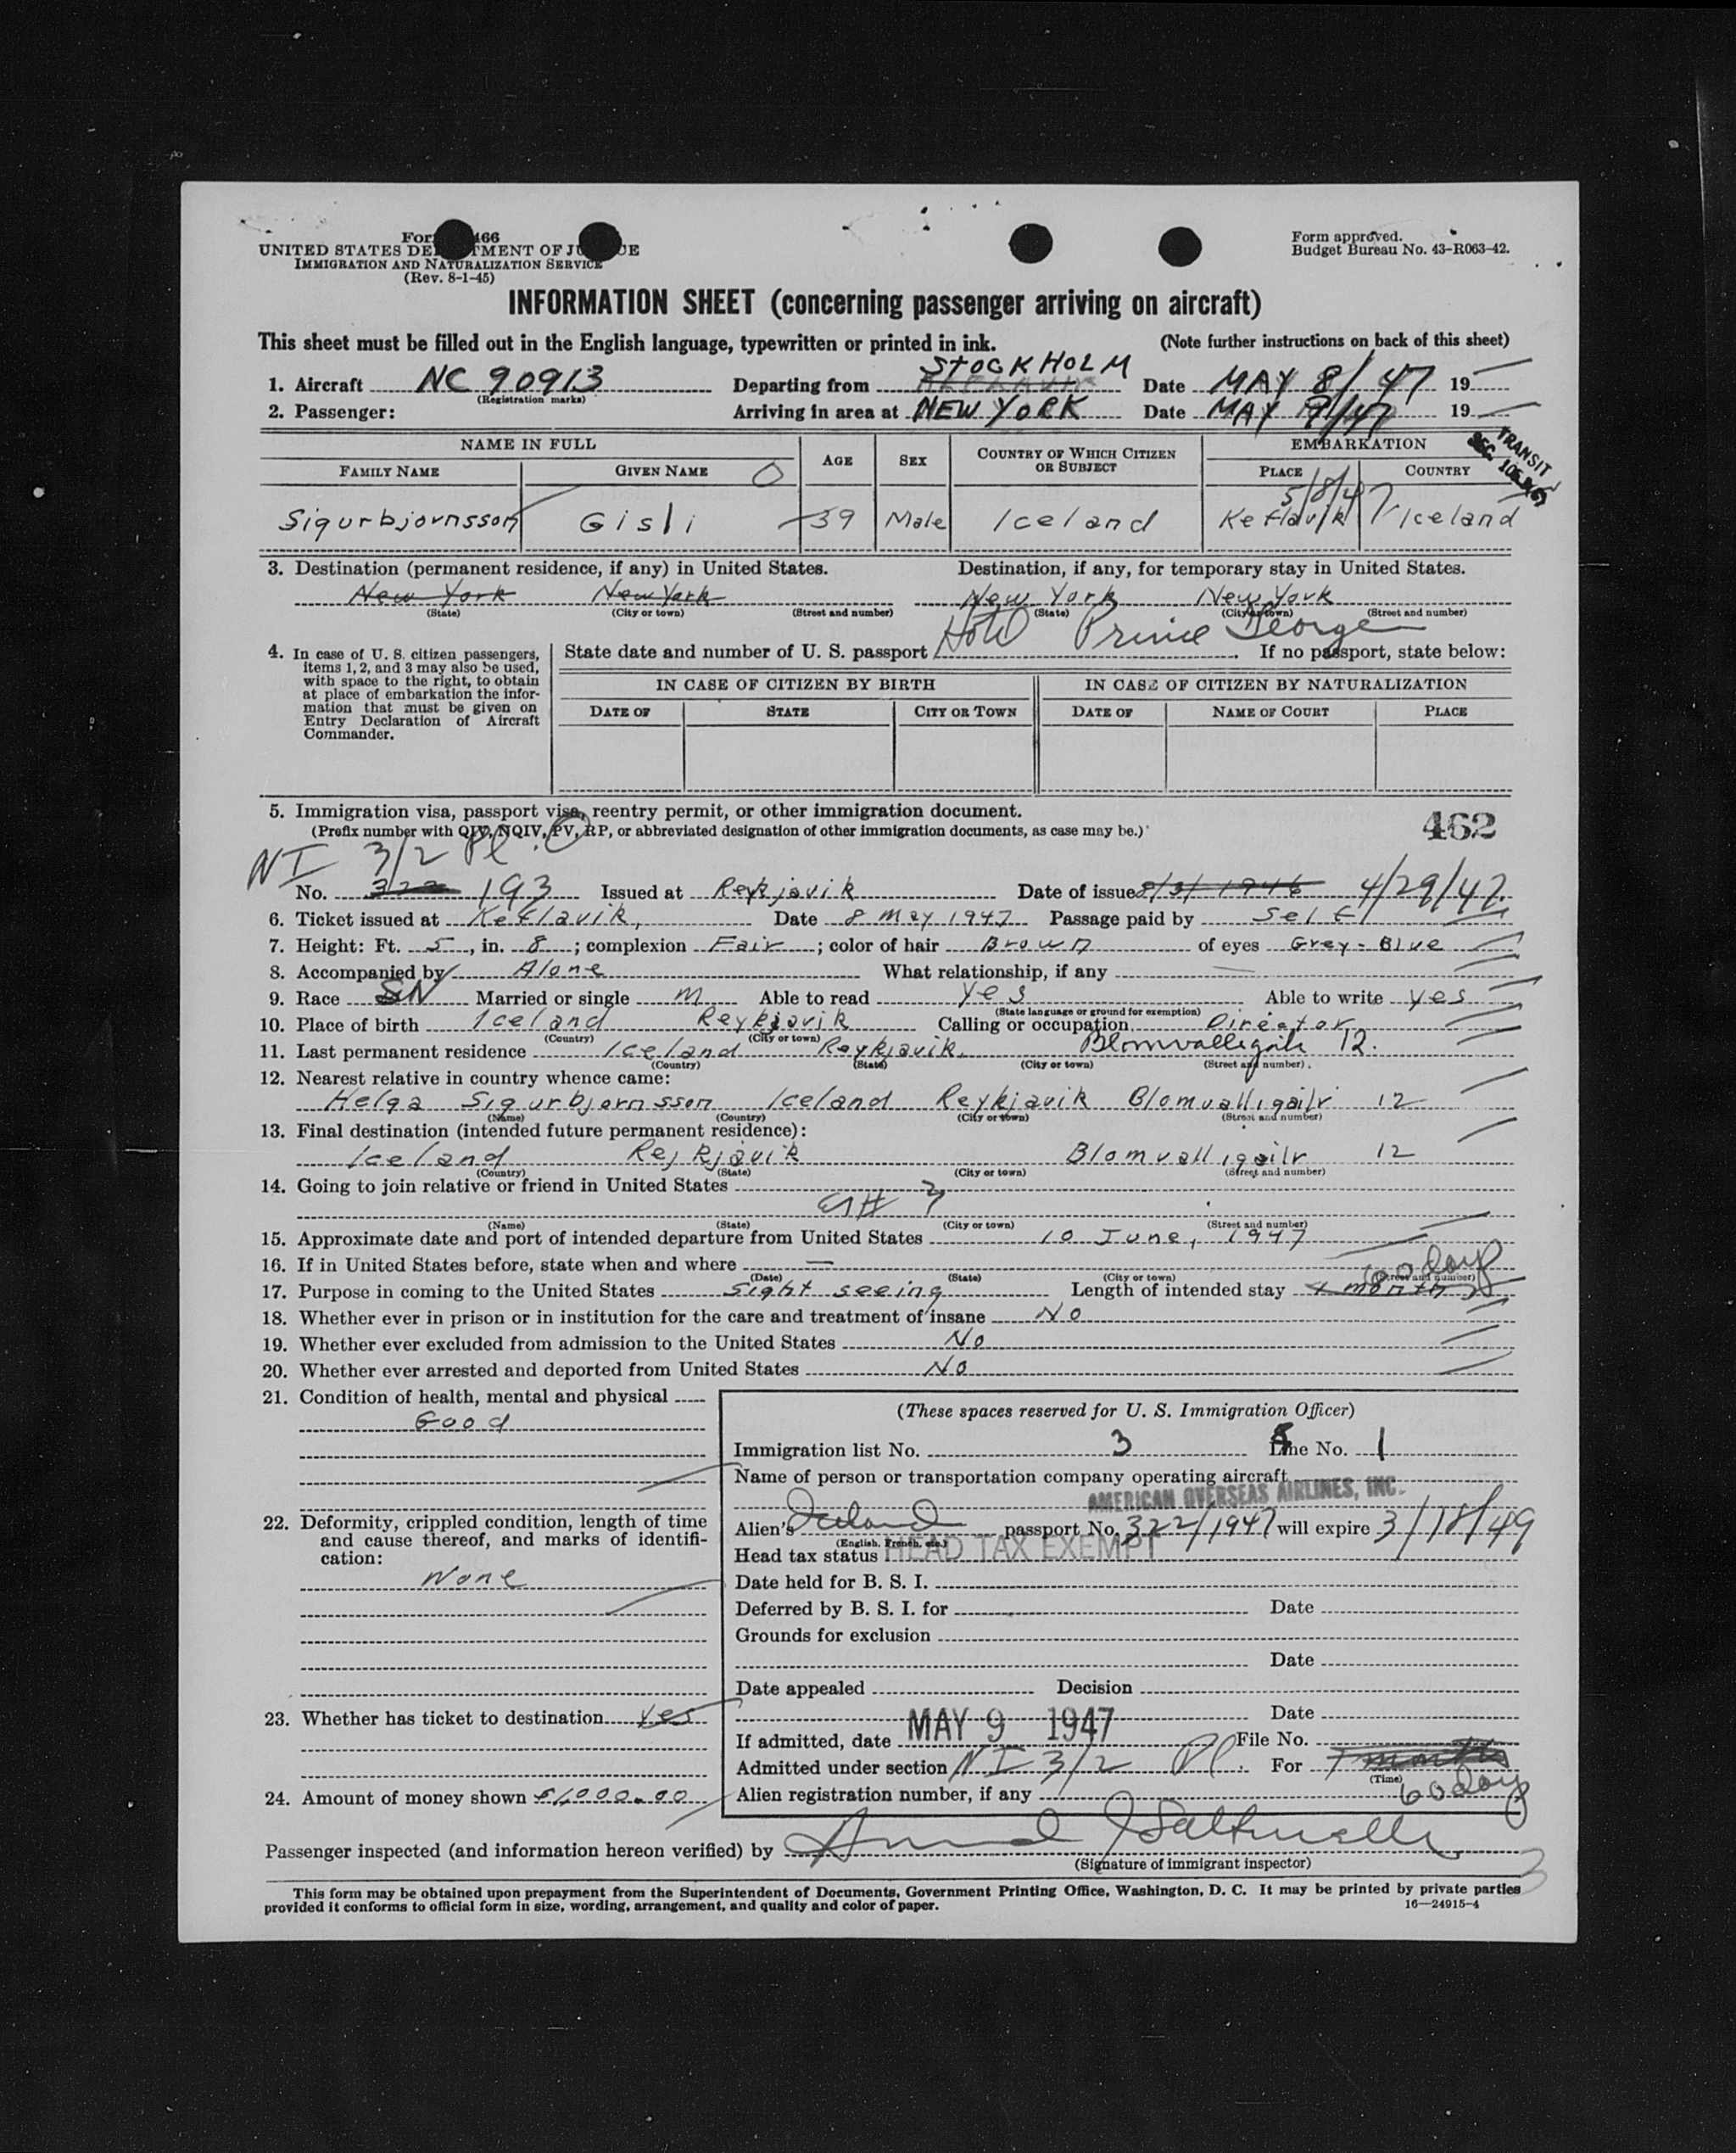 Form 466
UNITED STATES DEPARTMENT OF JUSTICE
IMMIGRATION AND NATURALIZATION SERVICE
(Rev. 8-1-45)
Form approved.
Budget Bureau No. 43-R063-42.
INFORMATION SHEET (concerning passenger arriving on aircraft)
This sheet must be filled out in the English language, typewritten or printed in ink. (Note further instructions on back of this sheet)
STOCKHOLM
1. Aircraft NC 90913 Departing from Date MAY 8/47 19
(Registration marks)
2. Passenger: Arriving in area at NEW YORK Date MAY 9/47 19
TRANSIT
NAME IN FULL AGE SEX COUNTRY OF WHICH CITIZEN OR SUBJECT EMBARKATION
FAMILY NAME GIVEN NAME PLACE COUNTRY
5/8/47
Sigurbjornsson Gisli 39 Male Iceland Keflavik Iceland
3. Destination (permanent residence, if any) in United States. Destination, if any, for temporary stay in United States.
New York New York New York New York
(State) (City or town) (Street and number) (State) (City or town) (Street and number)
Hotel Prince George
4. In case of U. S. citizen passengers, items 1, 2, and 3 may also be used, with space to the right, to obtain at place of embarkation the information that must be given on Entry Declaration of Aircraft Commander.
State date and number of U. S. passport . If no passport, state below:
IN CASE OF CITIZEN BY BIRTH IN CASE OF CITIZEN BY NATURALIZATION
DATE OF STATE CITY OR TOWN DATE OF NAME OF COURT PLACE
5. Immigration visa, passport visa, reentry permit, or other immigration document.
(Prefix number with QIV, NQIV, PV, RP, or abbreviated designation of other immigration documents, as case may be.)
462
NI 3/2 Pl
No. 322 193 Issued at Reykjavik Date of issue 8/3/1946 4/29/47.
6. Ticket issued at Keflavik, Date 8 May 1947 Passage paid by Self
7. Height: Ft. 5, in. 8; complexion Fair; color of hair Brown of eyes Grey-Blue
8. Accompanied by Alone What relationship, if any
9. Race Married or single M Able to read Yes Able to write yes
(State language or ground for exemption)
10. Place of birth Iceland Reykjavik Calling or occupation Director
(Country) (City or town)
11. Last permanent residence Iceland Reykjavik Blomvalligata 12.
(Country) (State) (City or town) (Street and number)
12. Nearest relative in country whence came:
Helga Sigurbjornsson Iceland Reykjavik Blomvalligailr 12
(Name) (Country) (City or town) (Street and number)
13. Final destination (intended future permanent residence):
Iceland Rejkjavik Blomvalligailr 12
(Country) (State) (City or town) (Street and number)
14. Going to join relative or friend in United States
(Name) (State) (City or town) (Street and number)
15. Approximate date and port of intended departure from United States 10 June, 1947
16. If in United States before, state when and where —
(Date) (State) (City or town) (Street and number)
60 days
17. Purpose in coming to the United States Sight seeing Length of intended stay month
18. Whether ever in prison or in institution for the care and treatment of insane No
19. Whether ever excluded from admission to the United States No
20. Whether ever arrested and deported from United States No
21. Condition of health, mental and physical
Good
22. Deformity, crippled condition, length of time and cause thereof, and marks of identification:
None
23. Whether has ticket to destination Yes
24. Amount of money shown $1,000.00
(These spaces reserved for U. S. Immigration Officer)
Immigration list No. 3 Line No. 1
Name of person or transportation company operating aircraft
AMERICAN OVERSEAS AIRLINES, INC.
Alien's Iceland passport No. 322/1947 will expire 3/18/49
(English, French, etc.)
Head tax status HEAD TAX EXEMPT
Date held for B. S. I.
Deferred by B. S. I. for Date
Grounds for exclusion
Date
Date appealed Decision
Date
If admitted, date MAY 9 1947 File No.
Admitted under section NI 3/2 Pl. For
(Time)
60 days
Alien registration number, if any
Passenger inspected (and information hereon verified) by
(Signature of immigrant inspector)
3
This form may be obtained upon prepayment from the Superintendent of Documents, Government Printing Office, Washington, D. C. It may be printed by private parties
provided it conforms to official form in size, wording, arrangement, and quality and color of paper.
16—24915-4